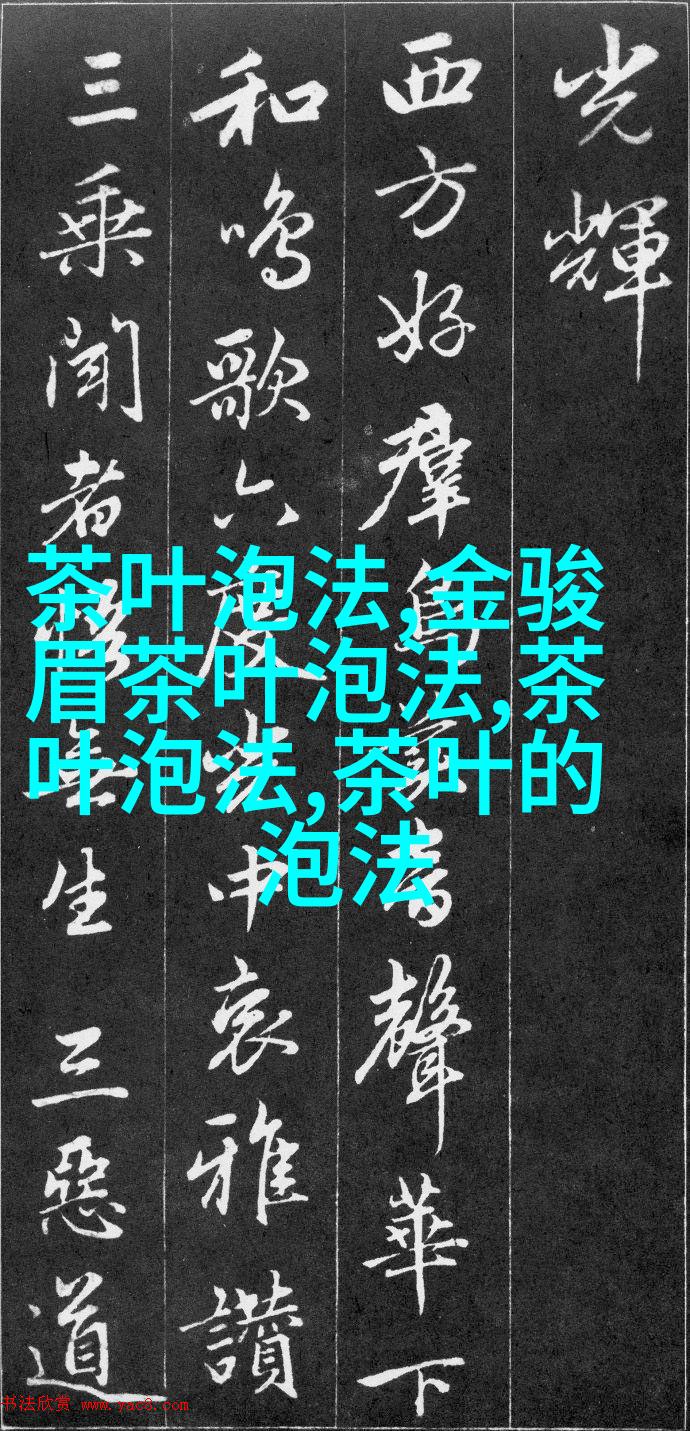 光輝
西方好羣鳥音聲華下
和鳴歌六度光中哀雅讚
三乘聞者悟無生 三惡道
茶叶泡法,金骏
眉茶叶泡法,茶
叶泡法,茶叶的
泡法
书法欣赏 www.yac8.com